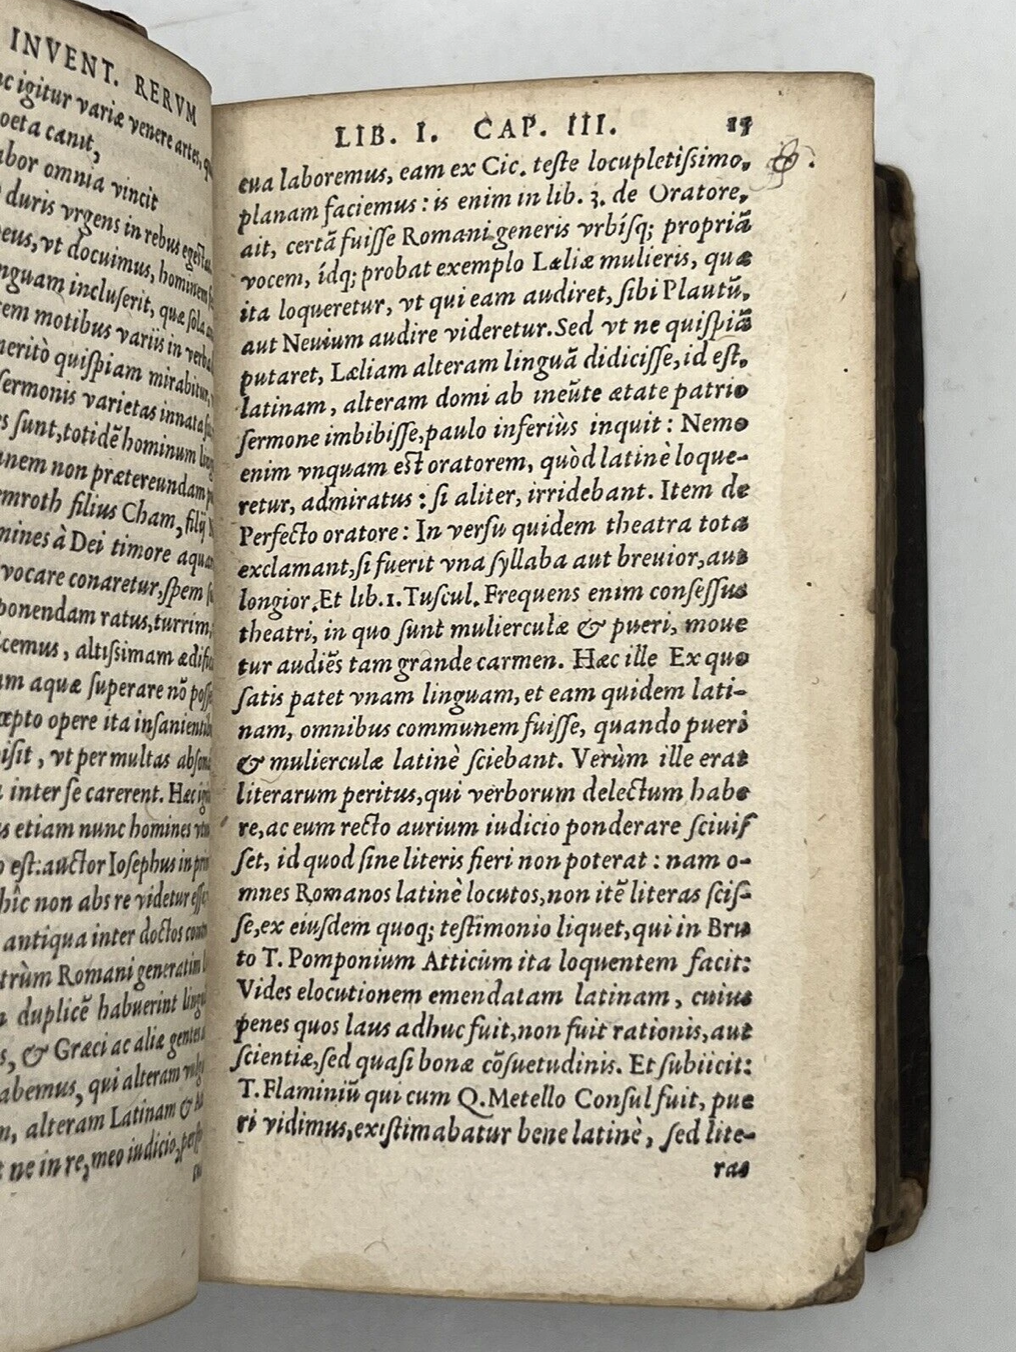 INVENT. RERVM
igitur variæ venere artes,
poeta canit,
labor omnia vincit
duris vrgens in rebus egestas
vt docuimus, hominem
incluserit, quæ sola
motibus variis in
meritò quispiam mirabitur,
sermonis varietas innata
sunt, totidē hominum
non prætereundam
filius Cham, filij
à Dei timore
vocare conaretur, spem
ponendam ratus, turrim,
altissimam
aquæ superare nō
opere ita
vt per multas
inter se carerent. Hæc
etiam nunc homines
est: auctor Iosephus in
hîc non abs re videtur
antiqua inter doctos
Romani generatim
duplicē habuerint
& Græci ac aliæ gentes
habemus, qui alteram
alteram Latinam &
ne in re, meo iudicio,
LIB. I. CAP. III. 15
cua laboremus, eam ex Cic. teste locupletissimo,
planam faciemus : is enim in lib. 3. de Oratore,
ait, certā fuisse Romani generis vrbísq; propriā
vocem, ídq; probat exemplo Læliæ mulieris, quæ
ita loqueretur, vt qui eam audiret, sibi Plautū,
aut Neuium audire videretur. Sed vt ne quispiā
putaret, Læliam alteram linguā didicisse, id est,
latinam, alteram domi ab ineūte ætate patrio
sermone imbibisse, paulo inferiùs inquit : Nemo
enim vnquam est oratorem, quòd latinè loque-
retur, admiratus : si aliter, irridebant. Item de
Perfecto oratore : In versu quidem theatra tota
exclamant, si fuerit vna syllaba aut breuior, aut
longior. Et lib. 1. Tuscul. Frequens enim consessus
theatri, in quo sunt mulierculæ & pueri, moue
tur audiēs tam grande carmen. Hæc ille Ex quo
satis patet vnam linguam, et eam quidem lati-
nam, omnibus communem fuisse, quando pueri
& mulierculæ latinè sciebant. Verùm ille erat
literarum peritus, qui verborum delectum habe
re, ac eum recto aurium iudicio ponderare sciuis
set, id quod sine literis fieri non poterat : nam o-
mnes Romanos latinè locutos, non itē literas scis-
se, ex eiusdem quoq; testimonio liquet, qui in Bru
to T. Pomponium Atticum ita loquentem facit:
Vides elocutionem emendatam latinam, cuius
penes quos laus adhuc fuit, non fuit rationis, aut
scientiæ, sed quasi bonæ cōsuetudinis. Et subiicit:
T. Flaminiū qui cum Q. Metello Consul fuit, pue
ri vidimus, existimabatur bene latinè, sed lite-
ras